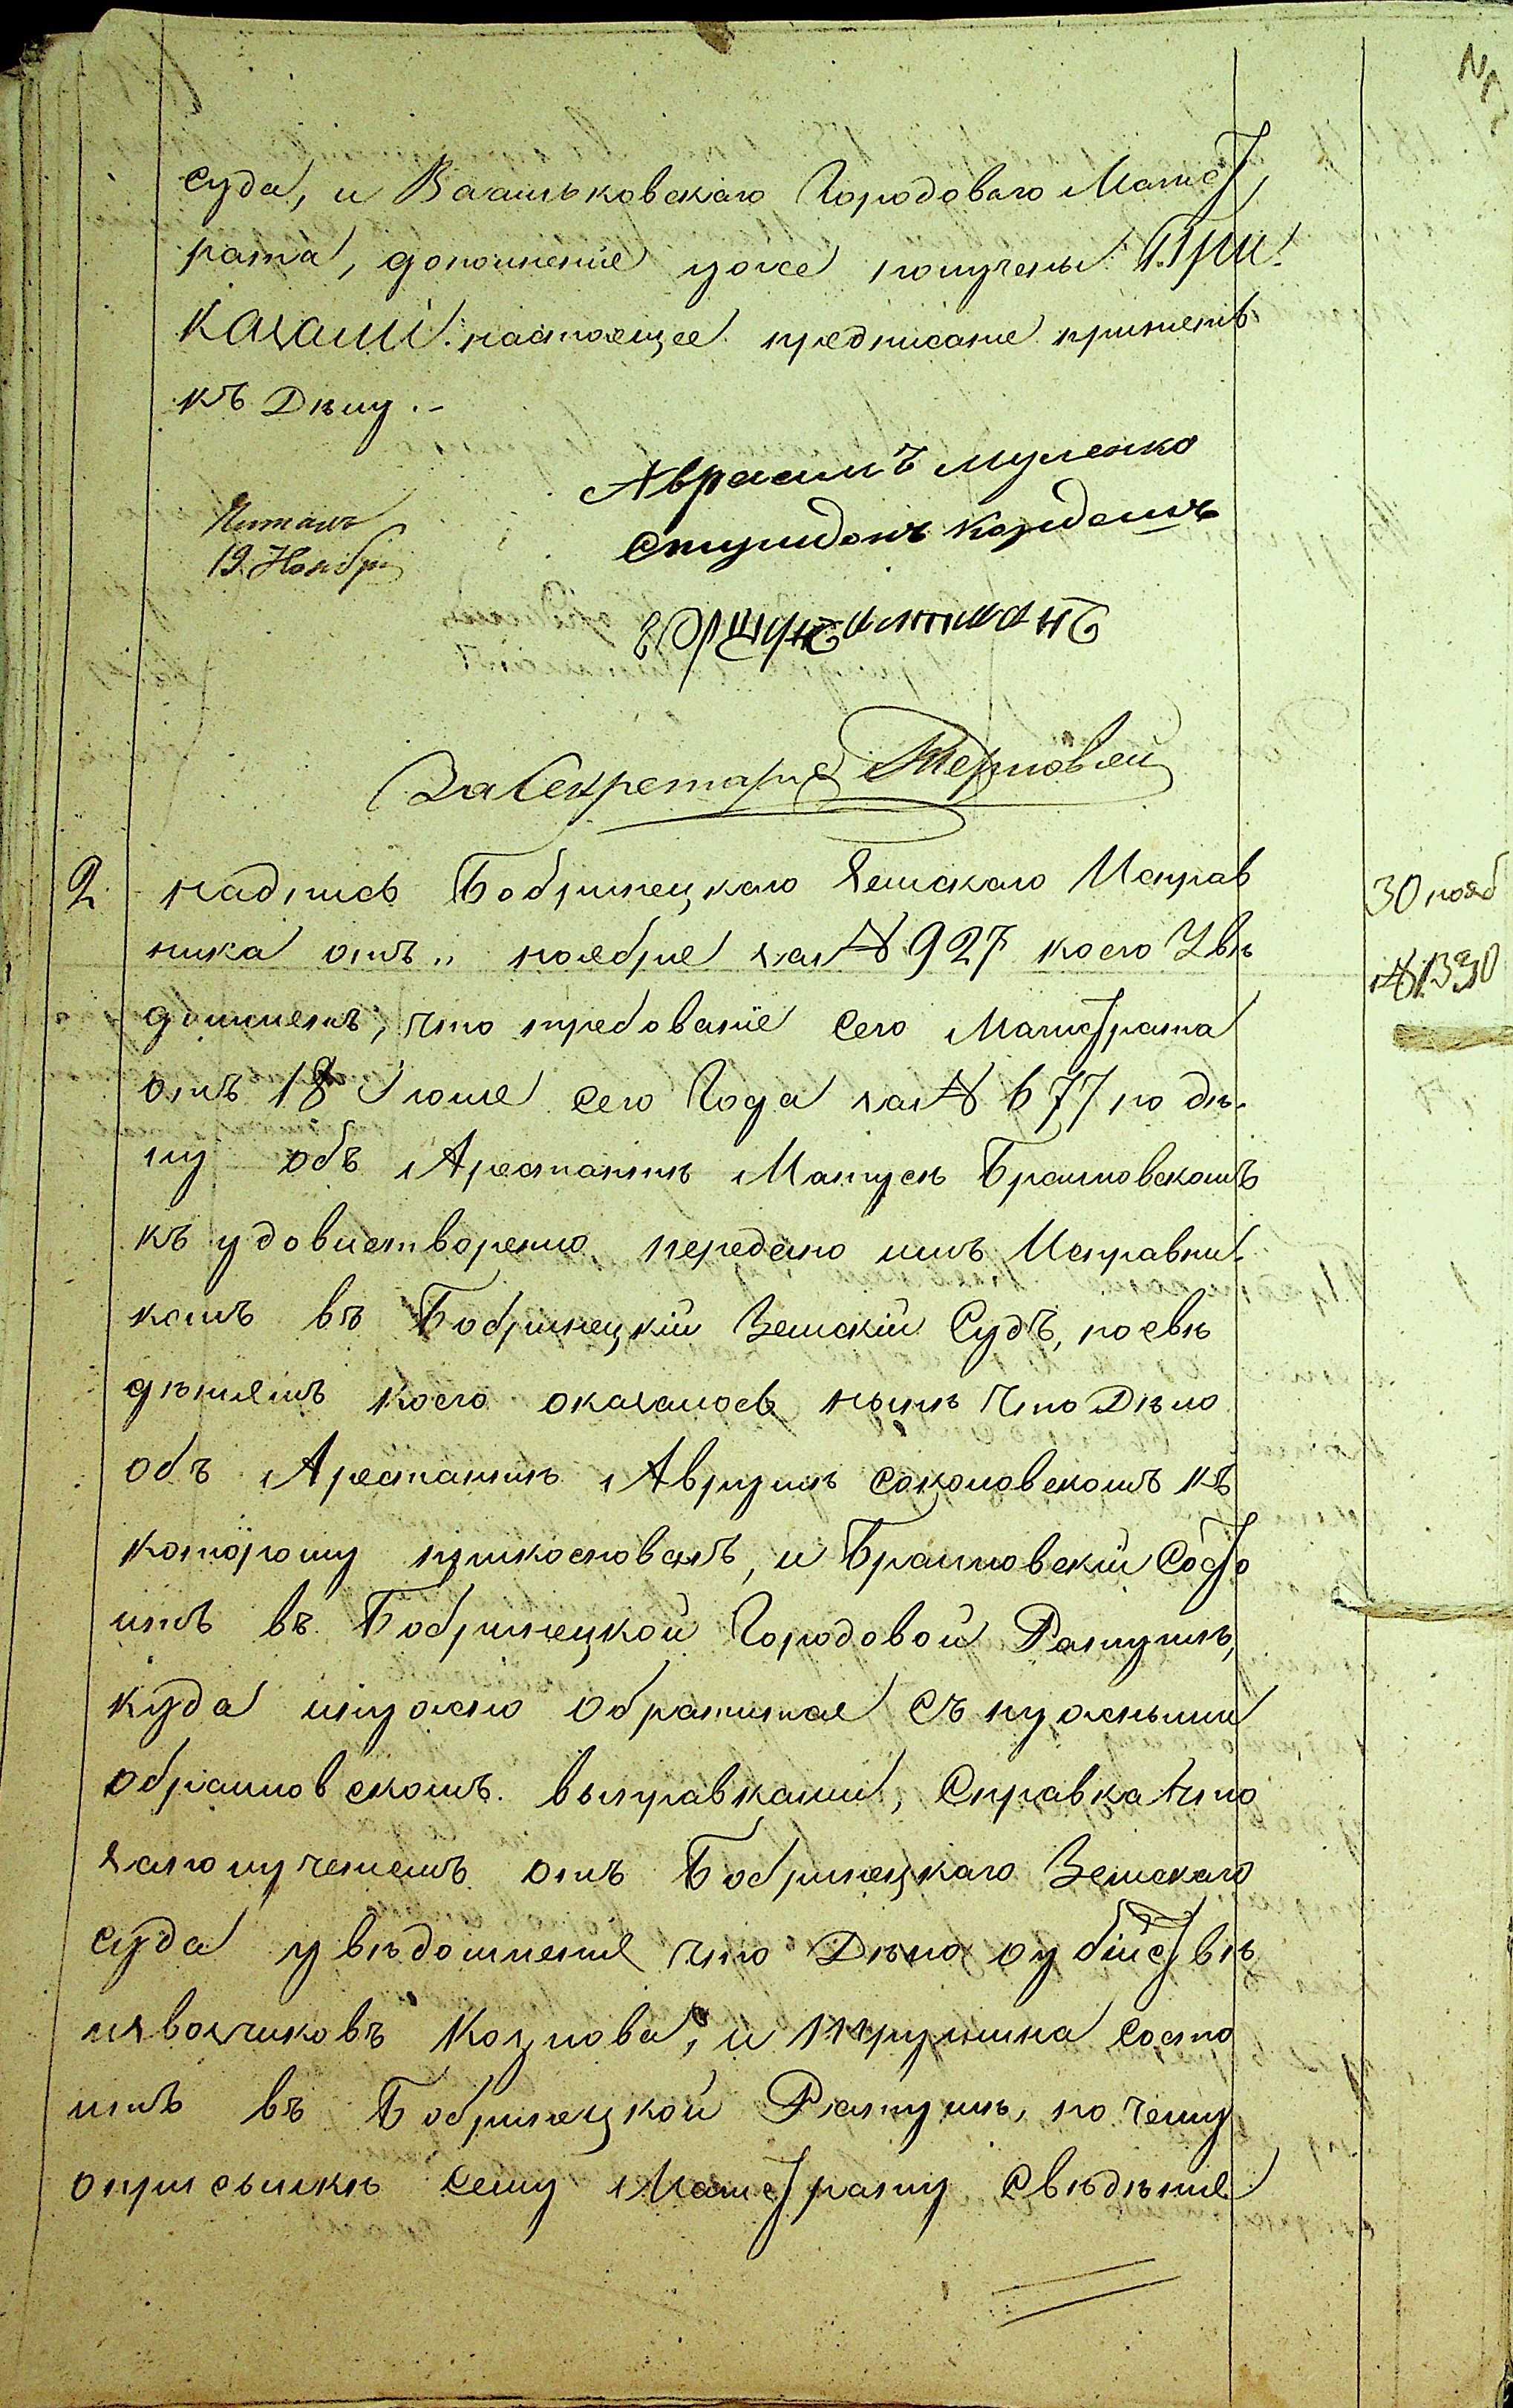 суда, и Васильковскаго Городоваго Магист
рата, дополнение уоже получены При-
казали: настоящее предписание приметъ
къ Делу.-
Авраамъ
Спиридонъ
Читалъ
19. Ноября
За Секретаря Терновый
2. надпись Бобринецкаго Земскаго Исправ
ника отъ „ ноября за № 927 коего Уве
домляетъ, что требование Сего Магистрата
отъ 18 Iюля сего Года за № 677 по де-
лу объ Арестанте Матусе Браиловскомъ
къ удовлетворению передано имъ Исправни-
комъ въ Бобринецкій Земскій Судъ, посве
денiямъ коего оказалось ныне что Дело
объ Арестанте Авруме Соколовскомъ къ
которому прикосновенъ, и Браиловскій Состо
итъ въ Бобринецкой Городовой Ратуше,
куда инужно обратится съ нужными
обраиловскомъ. выправками, Справка что
заполучениемъ отъ Бобринецкаго Земскаго
суда уведомление что Дело оубійстве
извозчиковъ Козлова, и состо
итъ въ Бобринецкой Ратуше, по чему
оприсылке сему Магистрату сведение
30 нояб
№ 1390